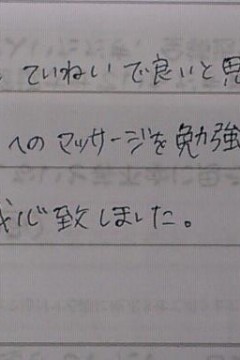 ていねいで良いと思
へのマッサージを勉強
感心致しました。